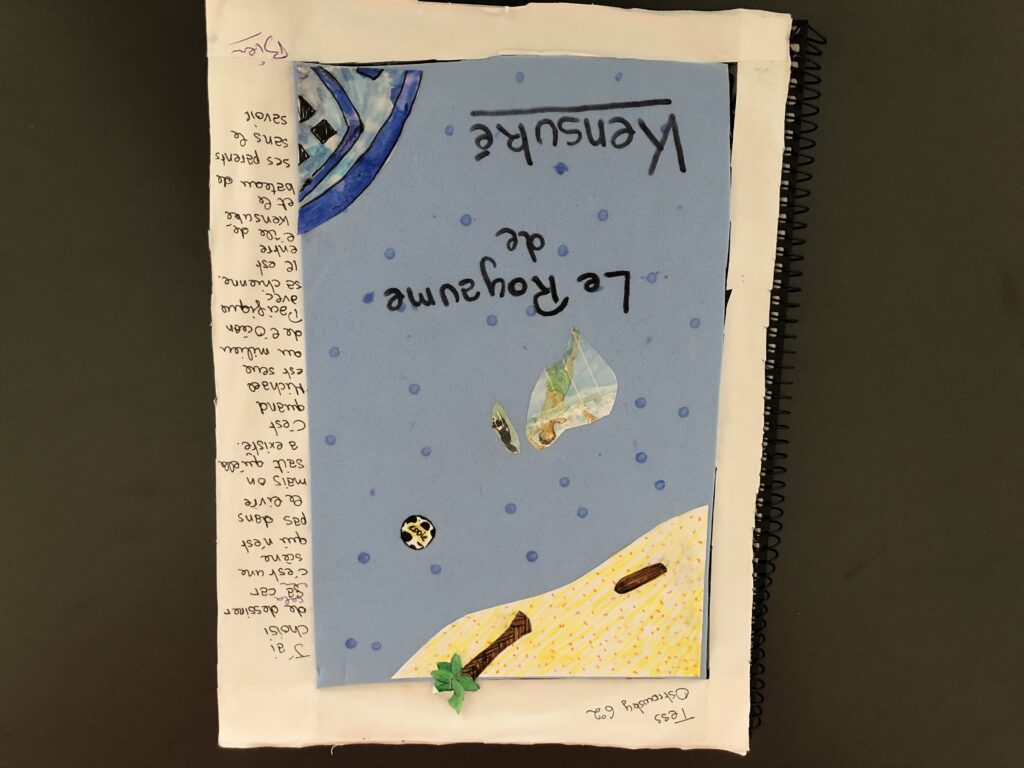 Tess
6°2
Le Royaume
de
Kensuké
J'ai
choisi
de dessiner
cela
ça car
c'est une
scène
qui n'est
pas dans
le livre
mais on
sait qu'elle
a existé.
C'est
quand
Michael
est seul
au milieu
de l'Océan
Pacifique
avec
sa chienne.
Il est
entre
l'île de
Kensuké
et le
bateau de
ses parents
sans le
savoir
Bien